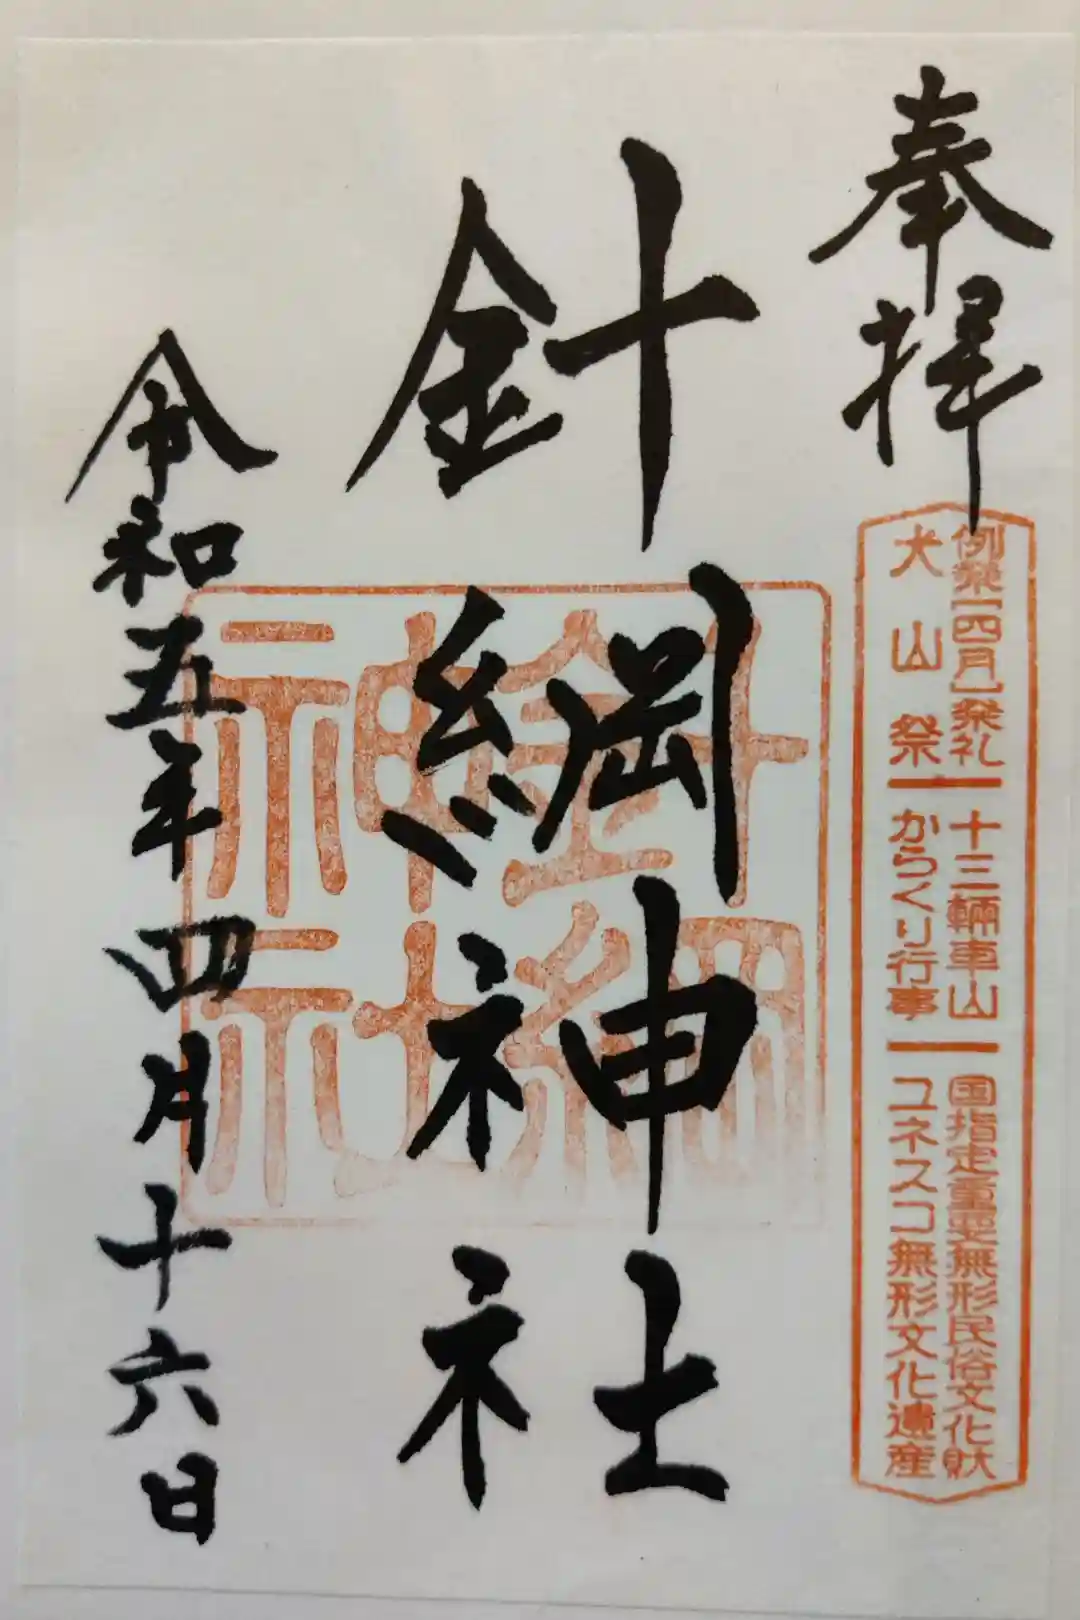 奉拝
例祭【四月】祭礼 十三輛車山 国指定重要無形民俗文化財
犬山祭 からくり行事 ユネスコ無形文化遺産
針綱神社
針綱
神社
令和五年四月十六日